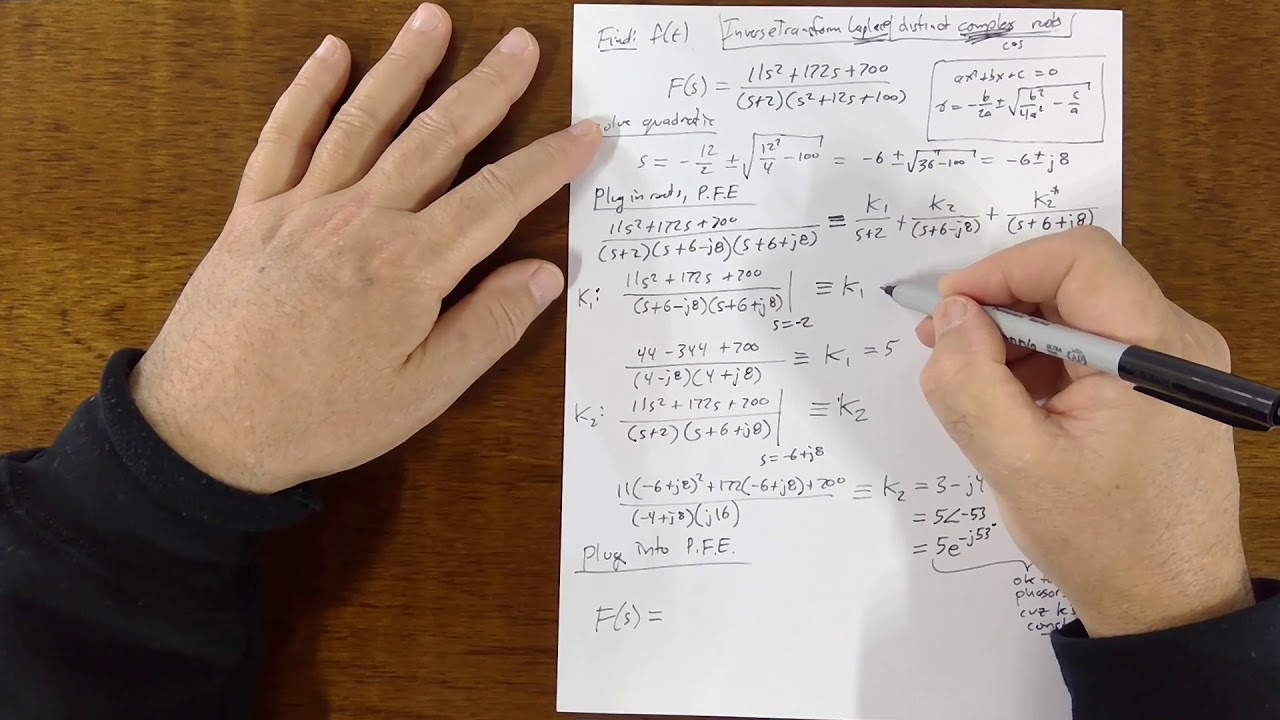 Find: f(t) Inverse Transform Laplace distinct complex roots
cos
F(s) = (11s² + 172s + 700) / ((s+2)(s² + 12s + 100))
ax² + bx + c = 0
r = -b/2a ± √(b²/4a² - c/a)
olve quadratic
s = -12/2 ± √(12²/4 - 100) = -6 ± √(36 - 100) = -6 ± j8
Plug in roots, P.F.E
(11s² + 172s + 700) / ((s+2)(s+6-j8)(s+6+j8)) ≡ K₁/(s+2) + K₂/(s+6-j8) + K₂*/(s+6+j8)
K₁: (11s² + 172s + 700) / ((s+6-j8)(s+6+j8)) | s=-2 ≡ K₁
(44 - 344 + 700) / ((4-j8)(4+j8)) ≡ K₁ = 5
K₂: (11s² + 172s + 700) / ((s+2)(s+6+j8)) | s=-6+j8 ≡ K₂
(11(-6+j8)² + 172(-6+j8) + 700) / ((-4+j8)(j16)) ≡ K₂ = 3 - j4
= 5∠-53
= 5e^(-j53°)
ok
phasor
cuz
const
Plug into P.F.E.
F(s) =